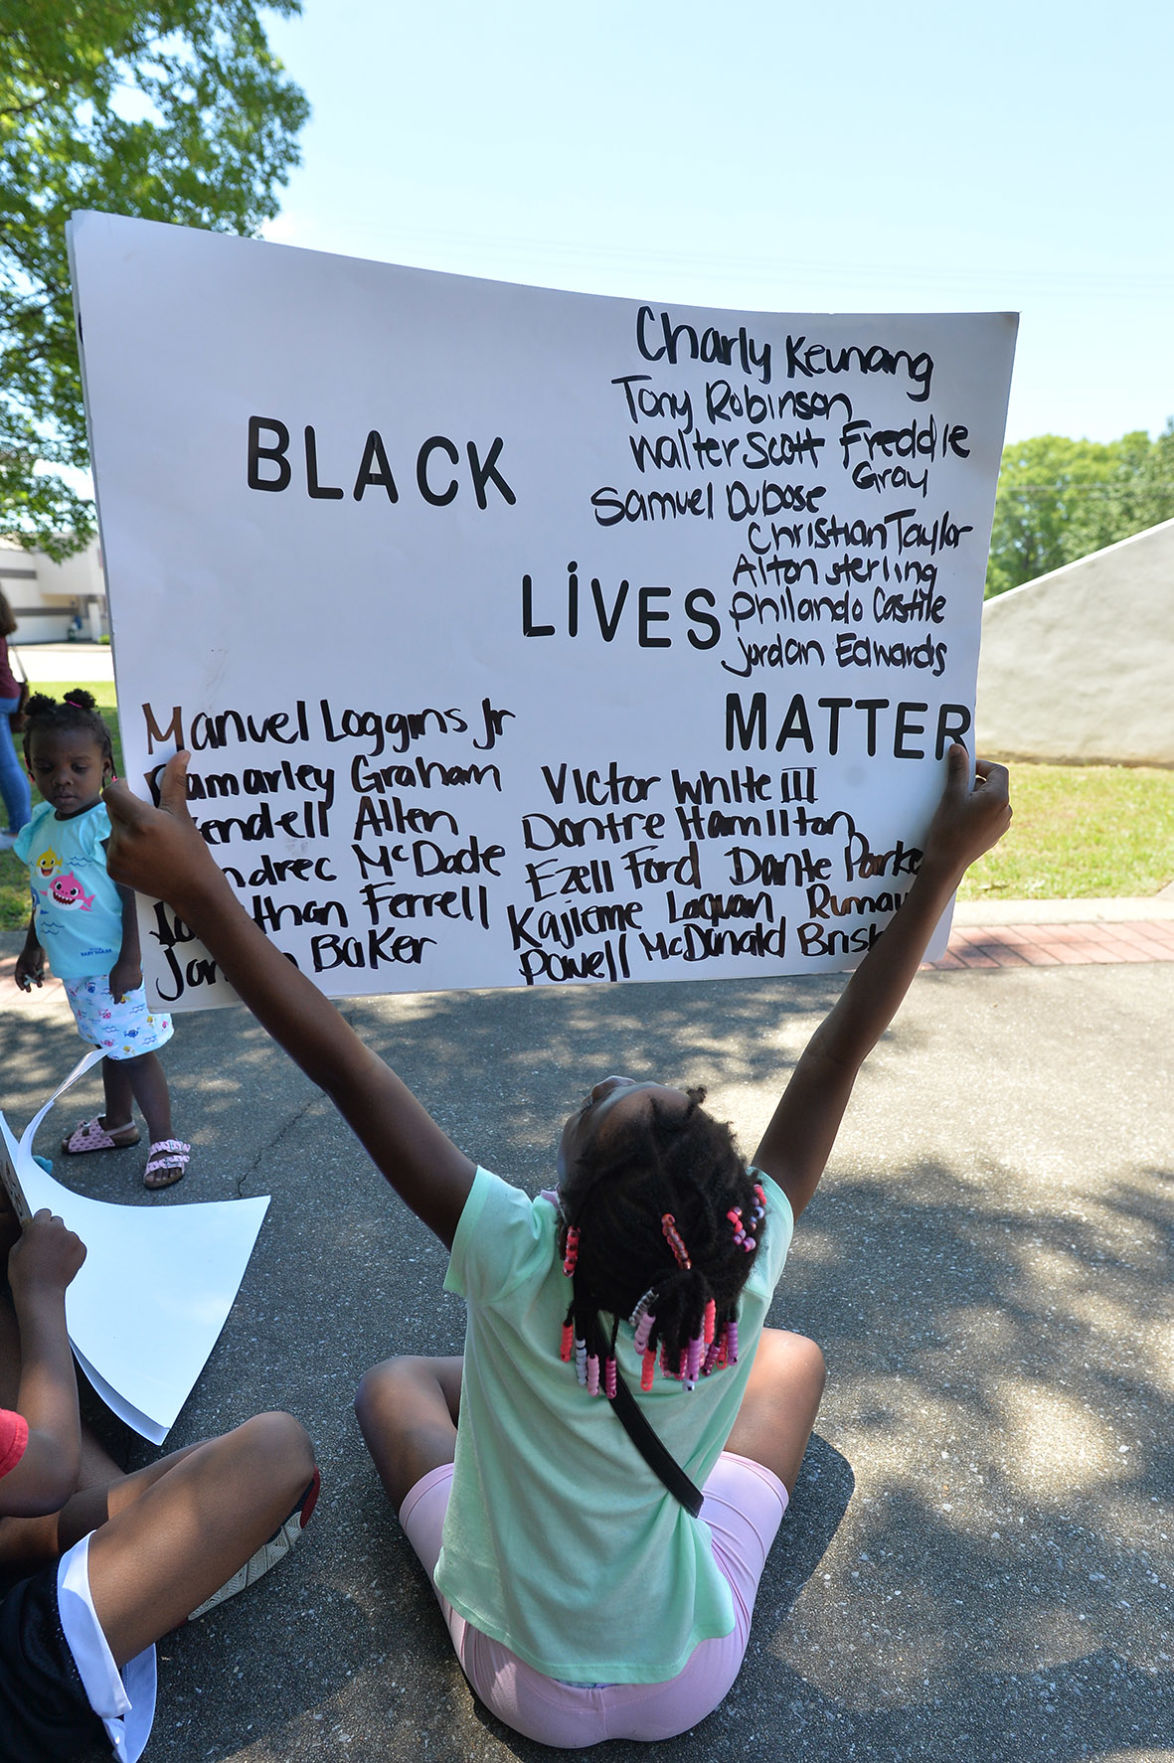 Charly Keunang
Tony Robinson
Walter Scott Freddie
Gray
Samuel Dubose
Christian Taylor
Alton sterling
philando Castile
jordan Edwards
BLACK
LIVES
MATTER
Manuel Loggins Jr
amarley Graham
endell Allen
ndrec McDade
than Ferrell
Jor Baker
Victor White III
Dontre Hamilton
Ezell Ford Dante Parke
Kajieme Laquan Ruma
Powell McDonald Brisb